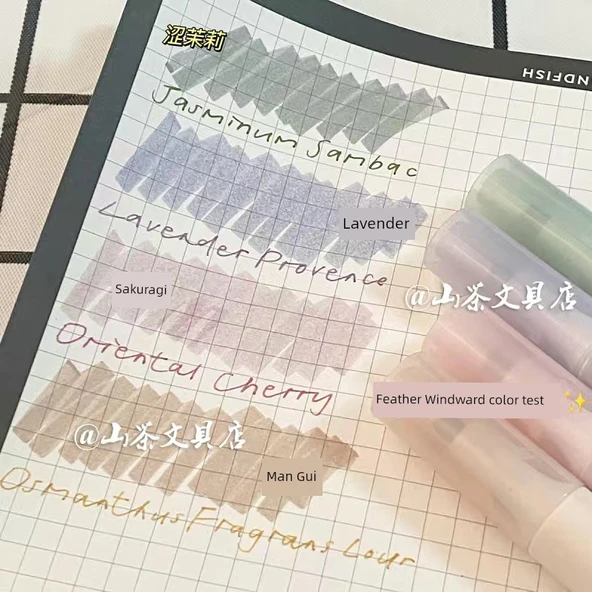 涩茉莉
NDFISH
Jasminum Sambac
Lavender
Lavender Provence
@山茶文具店
Sakuragi
Oriental Cherry
Feather Windward color test
@山茶文具店
Man Gui
Osmanthus Fragrans Lour